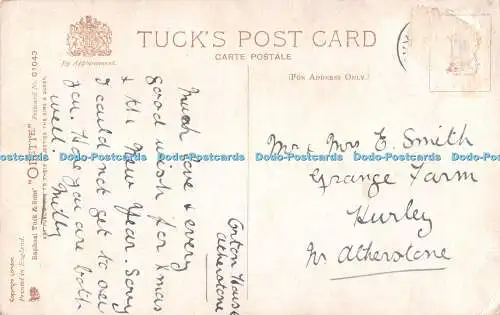 TUCK'S POST CARD
CARTE POSTALE
By Appointment.
(FOR ADDRESS ONLY.)
Raphael Tuck & Sons' "OILETTE" Postcard No. 01043
Copyright London.
Printed in England.
Much love & every
good wish for Xmas
& the New Year. Sorry
I could not get to see
you. Hope you are both
well.
Orton House
Atherstone
Mr & Mrs E. Smith
Grange Farm
Hurley
Nr Atherstone
Dado Postcards Dado Postcards Dado Postcards Dado Postcards Dado Postcards Dado Postcards